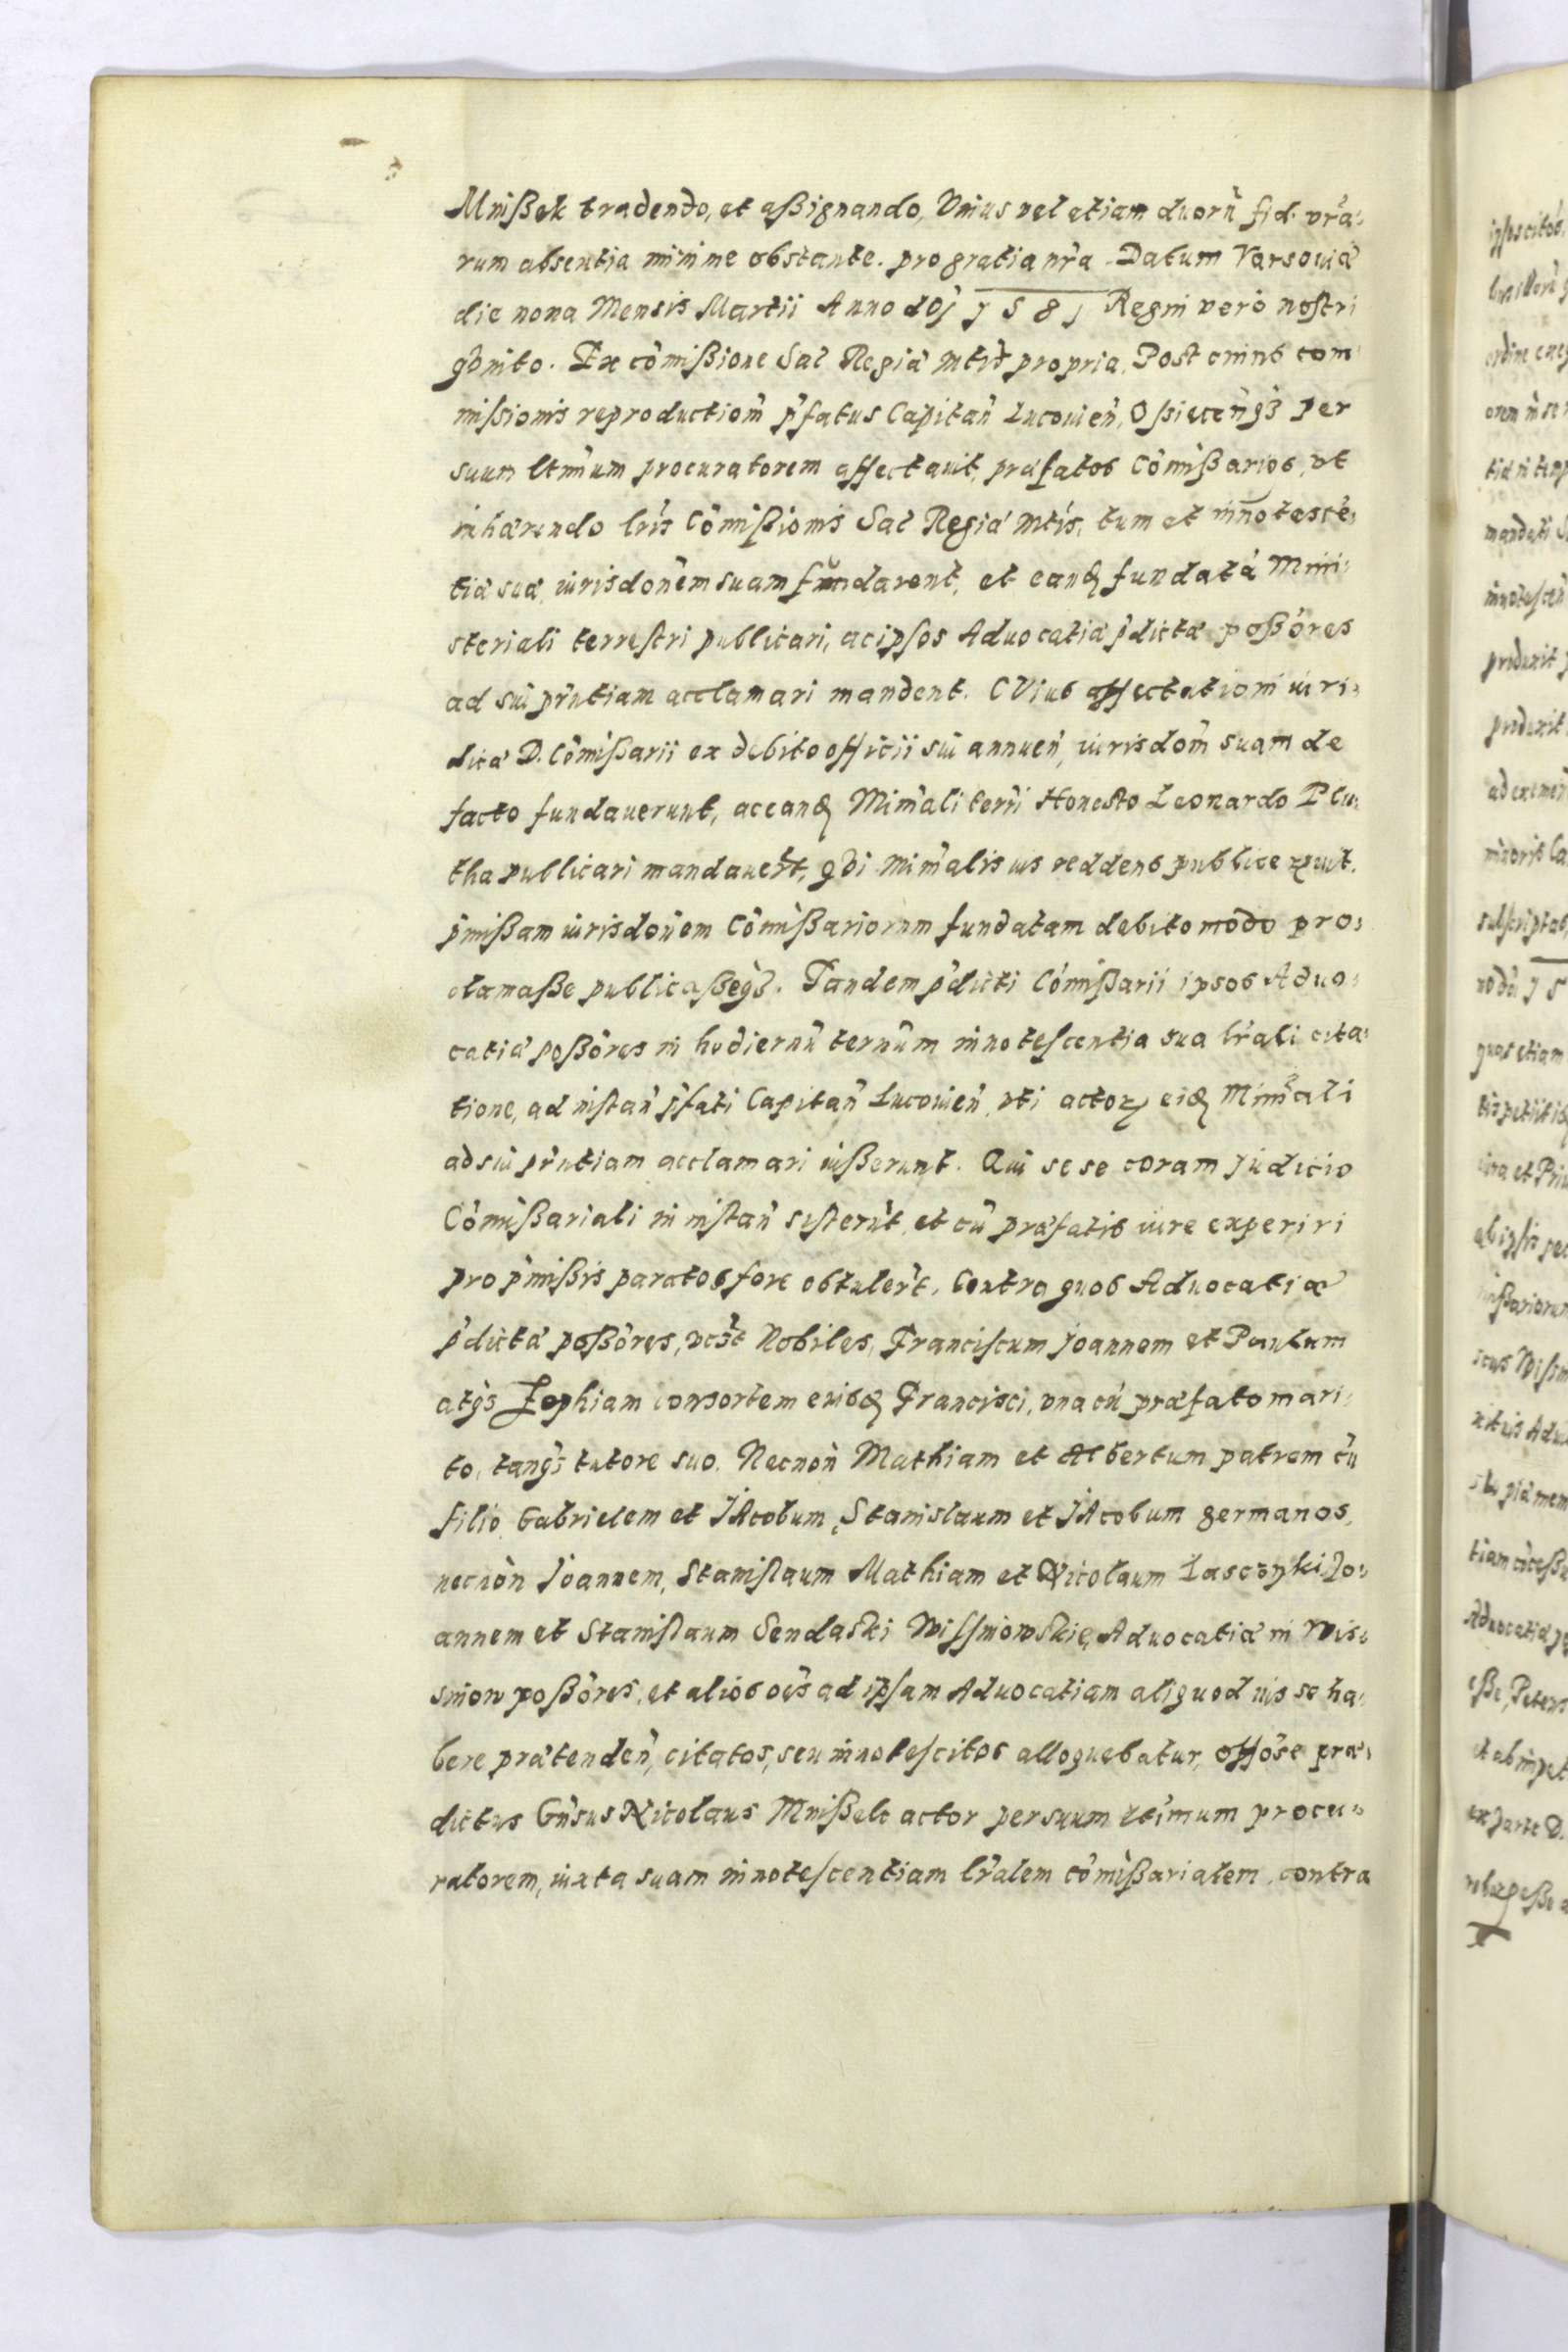 Mnißek tradendo, et aßignando, Vnius vel etiam duorũ fid. vrã:
rum absentia minime obstante. pro gratia nrã. Datum Varsouiæ
die nona Mensis Martii Anno dnj 1581 Regni vero nostri
qvinto. Ex cõmißione Sac Regiæ Mtis propria. Post cuius com
mißionis reproductiom̃ p̃fatus Capitañ Lucouieñ, Oßiecenq3 per
suum ltm̃um procuratorem affectauit, præfatos Cõmißarios, vt
inhærendo lr̃is Cõmißionis Sac Regiæ Mtis, tum et innotescẽ:
tiæ suæ, iurisdoñem suam fundarent, et eand fundatã Mini:
steriali terrestri publicari, ac ipsos Aduocatiæ p̃dictæ poßõres
ad sui pr̃ntiam acclamari mandent. CVius affectationi iuri:
dicæ D. Cõmißarii ex debito officii sui annueñ, iurisdom̃ suam de
facto fundauerunt, ac eand Minãli terrĩ Honesto Leonardo Plu:
tha publicari mandauer̃t, qdi Minãlis ius reddens publice
p̃mißam iurisdoñem Cõmißariorum fundatam debito modo pro:
clamaße publicaßeq3. Tandem p̃dicti Cõmißarii ipsos Aduo:
catiæ poßõres in hodiernũ ternũm innotescentia sua lr̃ali cita:
tione, ad instañ p̃fati Capitañ Lucouieñ, vti actor, eid Minãli
ad sui pr̃ntiam acclamari iußerunt. Qui sese coram Judicio
Cõmißariali in instañ sisterũt, et cũ præfatis iure experiri
pro p̃mißis paratos fore obtuler̃t, Contra quos Aduocatiæ
p̃dictæ poßõres, vcz̃t Nobiles, Franciscum Joannem et Paulum
atq3 Zophiam consortem euisd Francisci, vna cũ præfato mari:
to, tanq3 tutore suo. Necnoñ Mathiam et Albertum patrem cũ
filio, Gabrielem et JAcobum, Stanislaum et JAcobum germanos,
necnoñ Joannem, Stanislaum Mathiam et Nicolaum Lasczyki Jo:
annem et Stanislaum Sendaski Wissniowskie, Aduocatiæ in Wis:
sniow poßõres, et alios oẽs ad ipsam Aduocatiam aliquod ius se ha:
bere prætendeñ, citatos, seu innotescitos alloquebatur, offõse præ:
dictus Gñsus Nicolaus Mnißek actor per suum ltimum procu:
ratorem, iuxta suam innotescentiam lr̃alem cõmißarialem contra